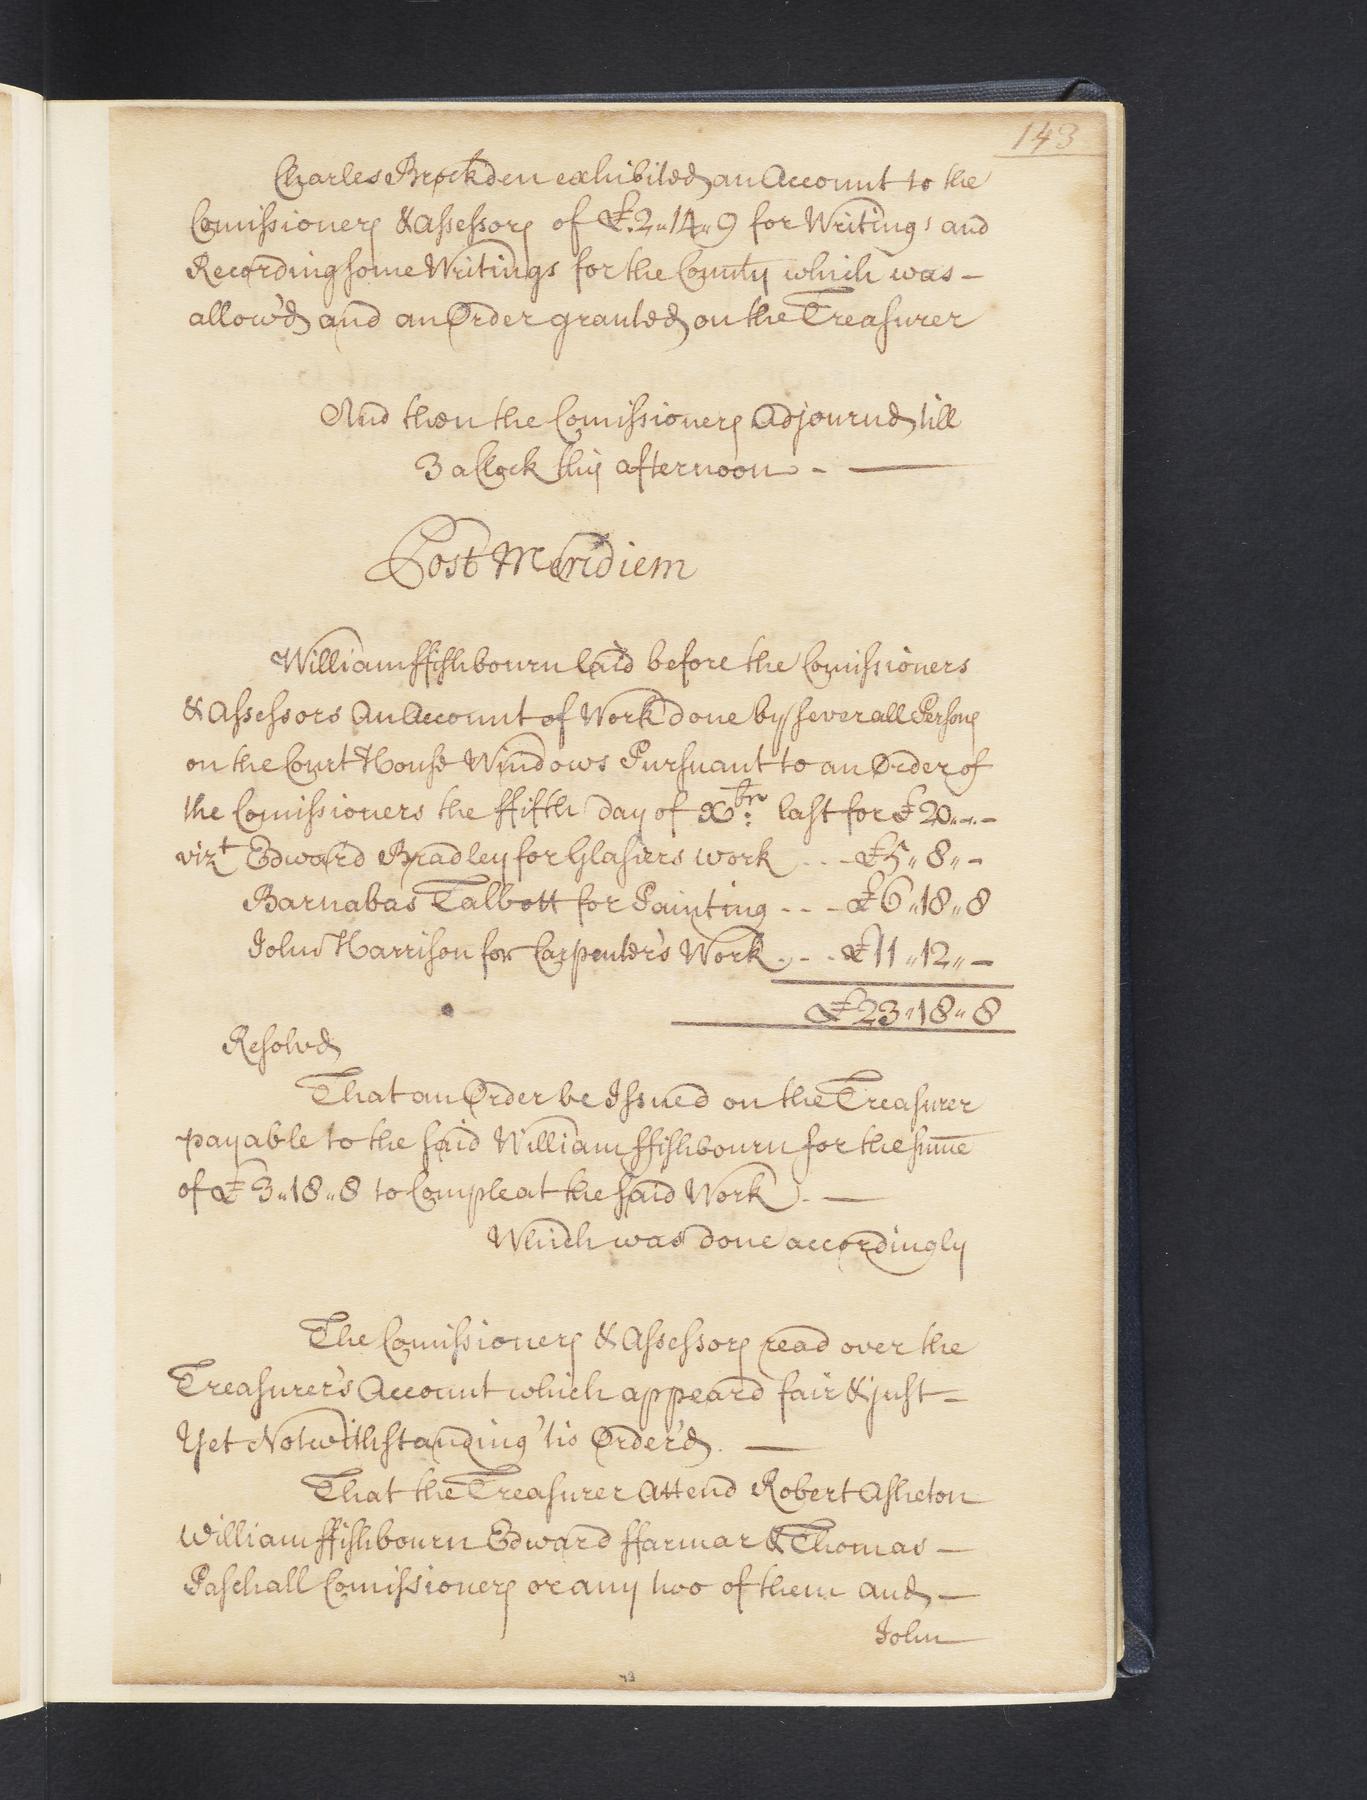 143
Charles Brockden exhibited an Account to the
Comissioners & Assessors of £.2,,14,,9 for Writings and
Recording some Writings for the County which was –
allow'd and an Order granted on the Treasurer
And then the Comissioners Adjournd till
3 a Clock this afternoon - —
Post Meridiem
William ffishbourn laid before the Comissioners
& Assessors An Account of Work done by severall Persons
on the Court House Windows Pursuant to an Order of
the Comissioners the ffifth day of Xbr: last for £20,,-,,-
vizt Edward Bradley for Glasiers work - - - £5,,8,,-
Barnabas Talbott for Painting - - - £6,,18,,8
John Harrison for Carpenter's Work - - - £11,,12,,-
£23,,18,,8
Resolvd
That an Order be Issued on the Treasurer
payable to the said William ffishbourn for the sume
of £3,,18,,8 to Compleat the said Work. —
Which was done accordingly
The Comissioners & Assessors read over the
Treasurer's Account which appeard fair & just =
Yet Notwithstanding 'tis Order'd. —
That the Treasurer Attend Robert Asheton
William ffishbourn Edward ffarmar & Thomas –
Paschall Comissioners or any two of them and –
John